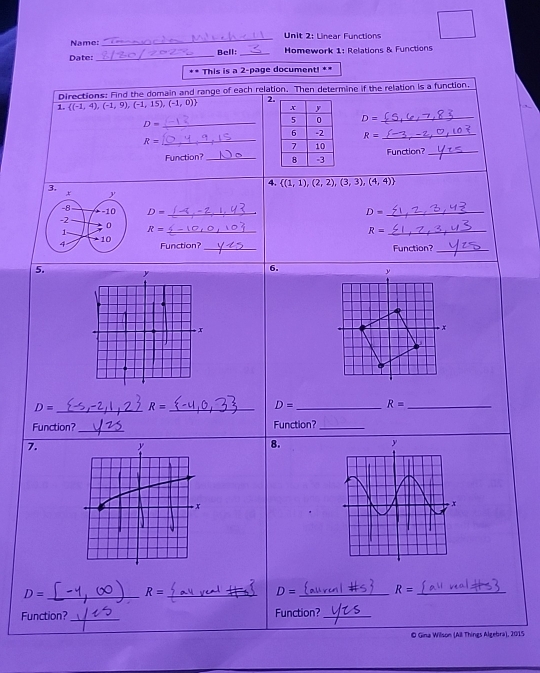 Name: Unit 2: Linear Functions
Date: 8/30/2023 Bell: 3 Homework 1: Relations & Functions
** This is a 2-page document! **
Directions: Find the domain and range of each relation. Then determine if the relation is a function.
1. {(-1, 4), (-1, 9), (-1, 15), (-1, 0)}
D = {-1}
R = {0, 4, 9, 15
Function? No
2.
x y
5 0
6 -2
7 10
8 -3
D = {5, 6, 7, 8}
R = {-3, -2, 0, 10}
Function? yes
3.
x y
-8 -10
-2 0
1 10
4
D = {-8, -2, 1, 4}
R = {-10, 0, 10}
Function? yes
4. {(1, 1), (2, 2), (3, 3), (4, 4)}
D = {1, 2, 3, 4}
R = {1, 2, 3, 4}
Function? yes
5.
y
x
D = {-5, -2, 1, 2} R = {-4, 0, 3}
Function? yes
6.
y
x
D = R =
Function?
7.
y
x
D = [-4, ∞) R = {all real #s}
Function? yes
8.
y
x
D = {all real #s} R = {all real #s}
Function? yes
© Gina Wilson (All Things Algebra), 2015